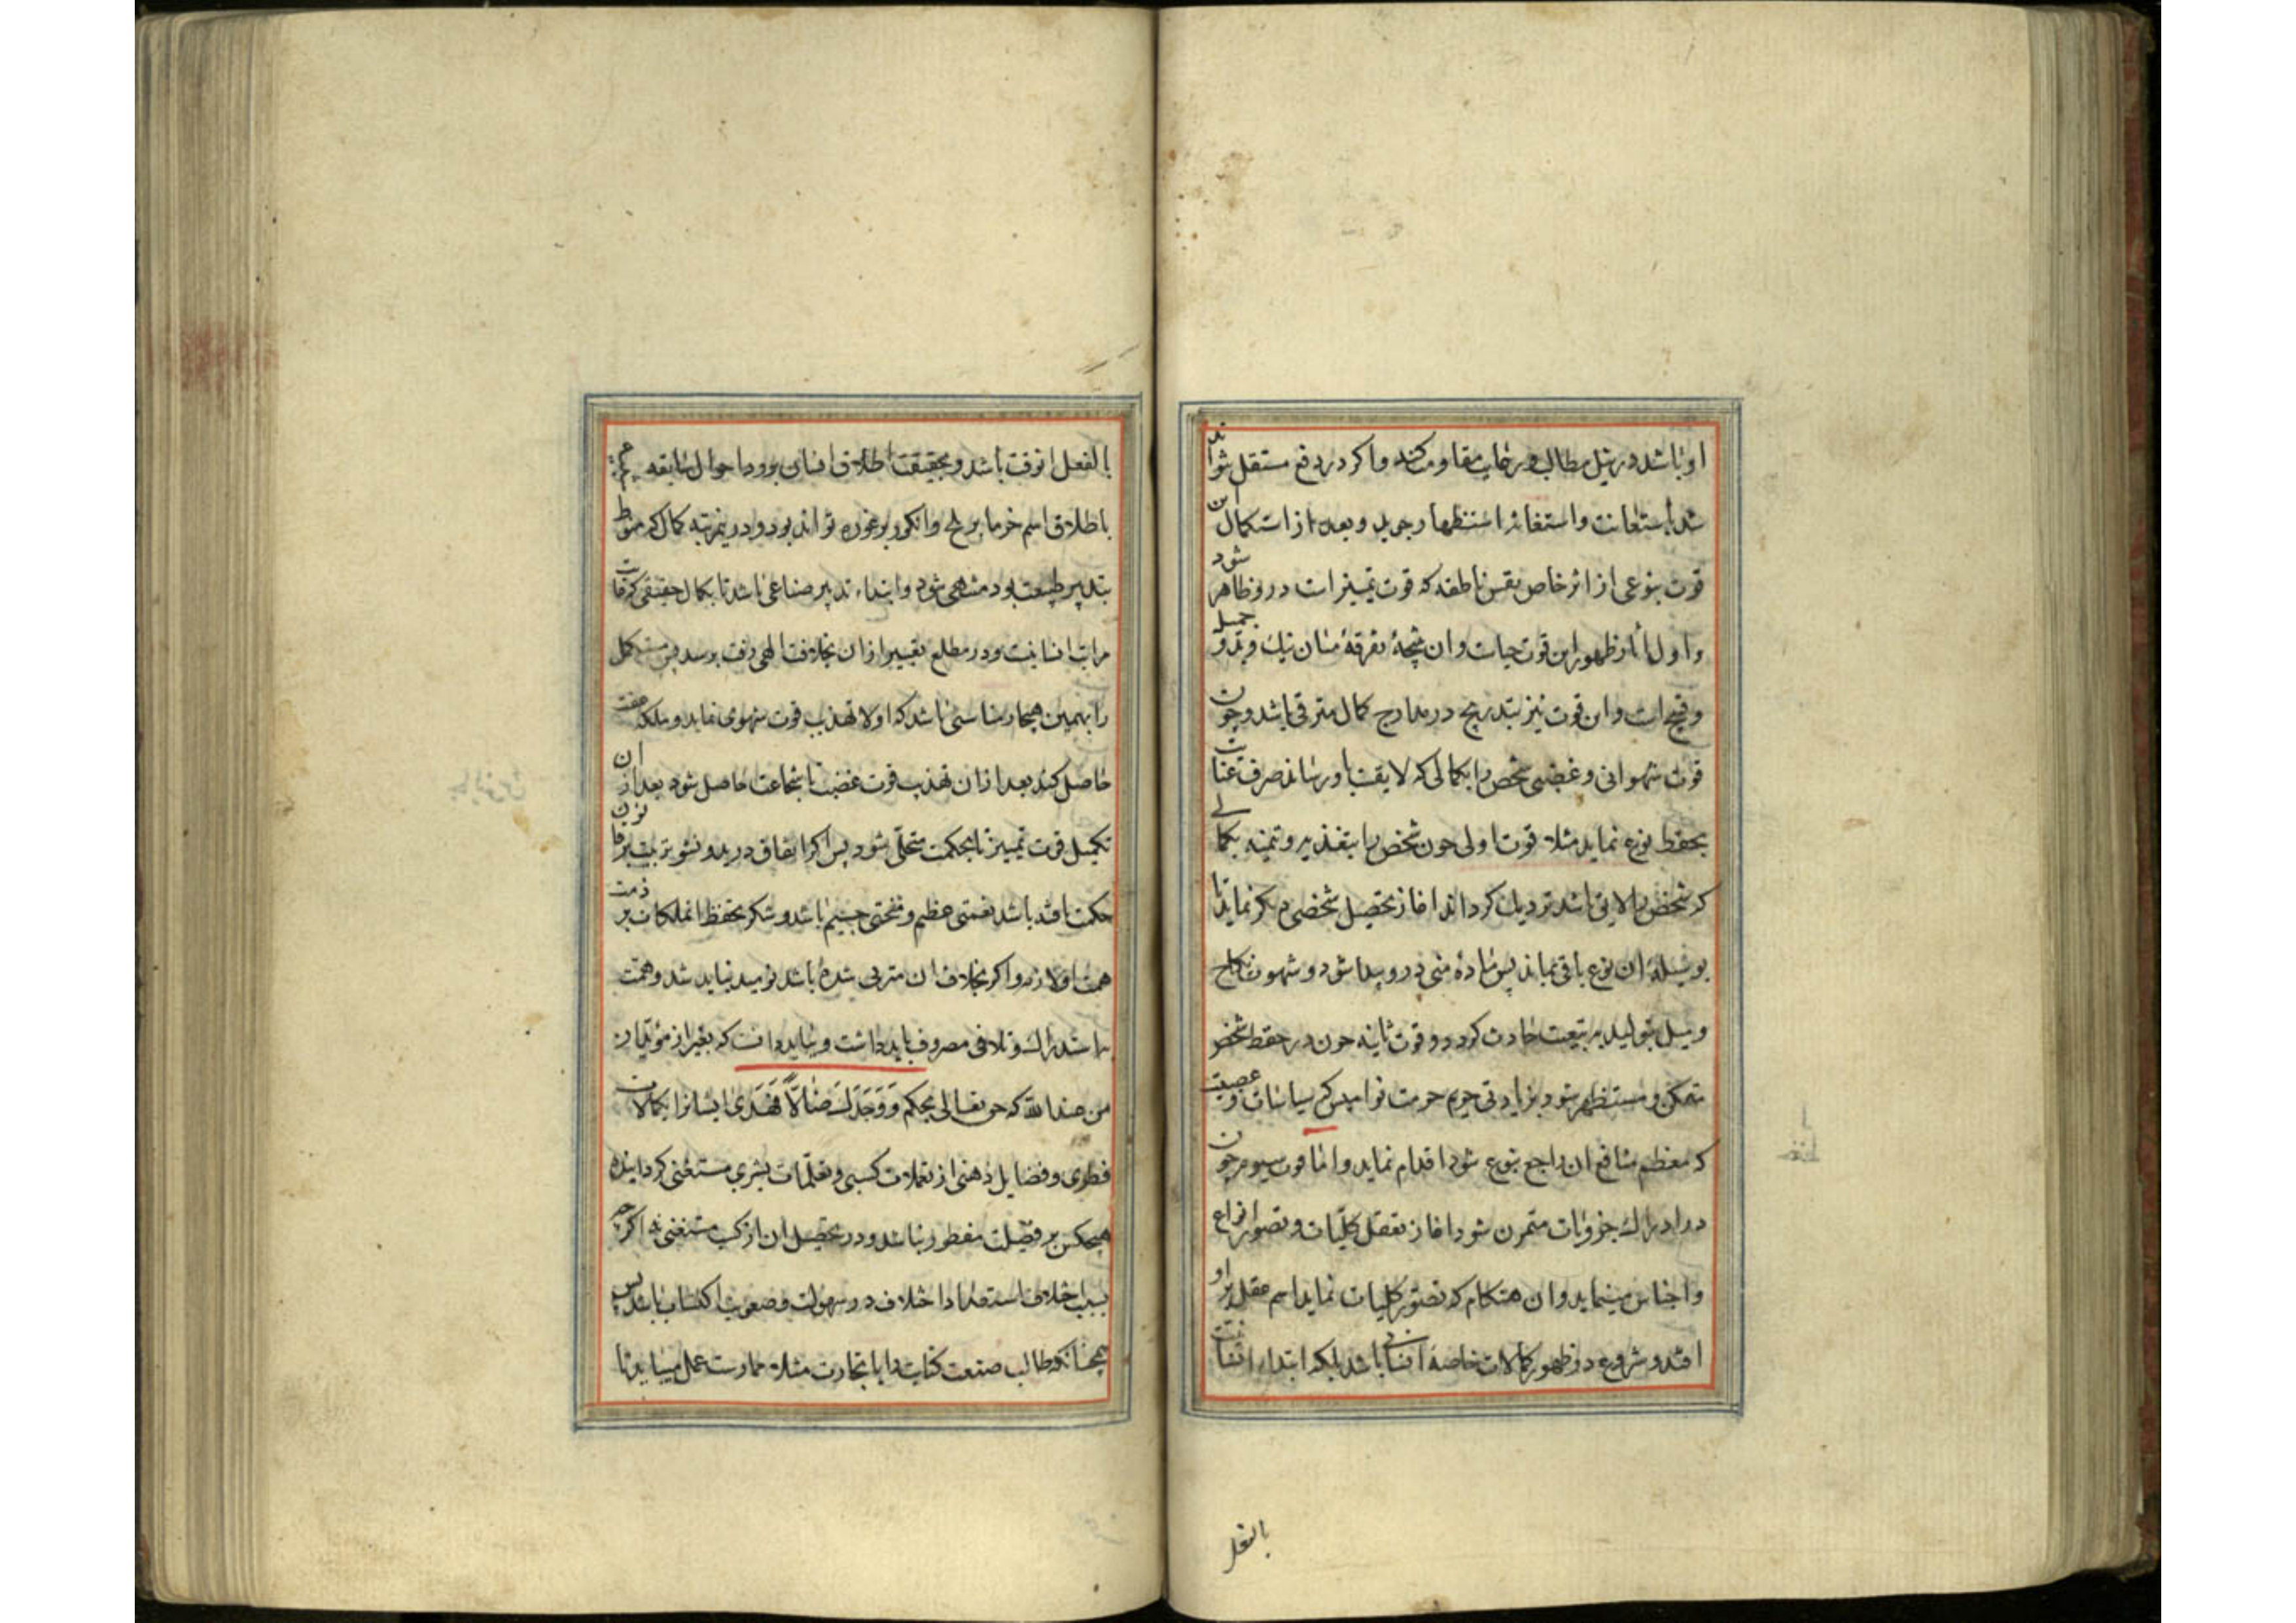 او باشد در نیل مطالب و رغایب مقاومت کند و اکر در دفع مستقل نتواند
شد باستعانت و استغاثه استظهار جوید و بعد از استکمال این
قوت بنوعی از اثر خاص نفس ناطقه که قوت تمییز است درو ظاهر شود
و اول اثار ظهور این قوت حیاست و ان نتیجهٔ تفرقه میان نیک و بد و جمیل
و قبیح است و این قوت نیز بتدریج در مدارج کمال مترقی باشد و چون
قوت شهوانی و غضبی شخص را بکمالی که لایقست باو رساند صرف عنایت
بحفظ نوع نماید مثلا قوت اولی چون شخص را بتغذیه و تنمیه بکمالی
که شخص را لایق باشد نزدیک کرداند اغاز تحصیل شخصی دیکر نماید تا
بوسیلهٔ ان نوع باقی بماند پس مادهٔ منی درو پیدا شود و شهوت نکاح
و میل بتولید بر تبعیت حادث کردد و قوت ثانیه چون در حفظ شخص
متمکن و مستظهر شود بزیادتی حریم حرمت نوامیس که سیاسات و عصبیت
که معظم منافع ان راجع بنوع شود اقدام نماید و اما قوت سیوم چون
در ادراک جزویات متمرن شود اغاز تعقل کلیات و تصور انواع
و اجناس مینماید و ان هنکام که تصور کلیات نماید اسم عقل بر او
افتد و شروع در ظهور کمالات خاصه انسانی باشد بلکه ابتداء انسانیت
بالفعل
بالفعل انوقت باشد و بحقیقت اطلاق انسان بر وی در احوال سابقه
باطلاق اسم خرما بر بلح و انکور بر غوره تواند بود و درین مرتبه کمال که منوط
بتدبیر طبیعت بود منتهی شود و ابتداء تدبیر صناعی باشد تا بکمال حقیقی که غایت
مراتب انسانیت و در مطلع تفسیر از ان بخلافت الهی رفت برسد پس مستکمل
را بهمین هنجار مناسبتی باشد که اولا تهذیب قوت شهوی نماید و ملکه عفت
حاصل کند بعد از ان تهذیب قوت غضب تا شجاعت حاصل شود بعد از ان
تکمیل قوت تمییز تا بحکمت متحلی شود پس اکر اتفاق در بدو نشو تربیت بر قانون
حکمت یافته باشد نعمتی عظیم و منحتی جسیم باشد و شکر بحفظ ان ملکات بر ذمت
همت او لازم و اکر بخلاف ان متربی شده باشد نومید نباید شد و همت
باستدراک و تلافی مصروف باید داشت و بباید دانست که بغیر از مؤیدان
من عند الله که حق تعالی بحکم وَوَجَدَكَ ضَالًّا فَهَدَی ایشانرا بکمالات
فطری و فضایل ذهنی از تعملات کسبی و تعلمات بشری مستغنی کردانیده
هیچکس بر فضیلت مفطور نباشد و در تحصیل ان از کسب مستغنی نه اکرچه
بسبب اختلاف استعداد اختلاف در سهولت و صعوبت اکتساب باشد پس
همچنانکه طالب صنعت کتابت را یا تجارت مثلا ممارست عمل میباید تا